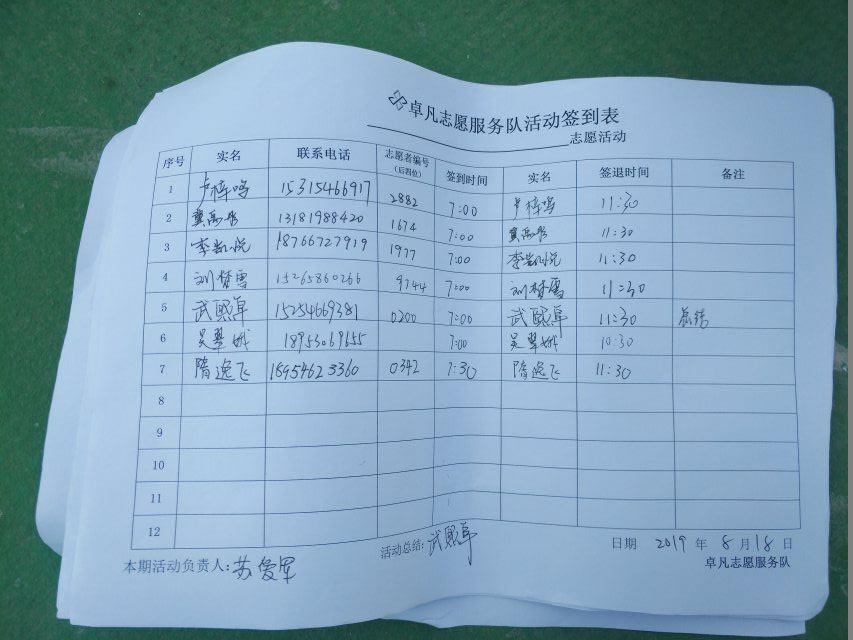 卓凡志愿服务队活动签到表
志愿活动
序号 实名 联系电话 志愿者编号(后四位) 签到时间 实名 签退时间 备注
1 卢梓鸣 15315466917 2882 7:00 卢梓鸣 11:30
2 13181988420 1674 7:00 11:30
3 李凯悦 18766727919 1977 7:00 李凯悦 11:30
4 刘梦雪 15265860266 9744 7:00 刘梦雪 11:30
5 武熙阜 15254669381 0200 7:00 武熙阜 11:30 总结
6 吴翠娥 18953069655 7:00 吴翠娥 10:30
7 隋逸飞 18954623360 0342 7:30 隋逸飞 11:30
8
9
10
11
12
本期活动负责人:苏爱军 活动总结:武熙阜 日期 2019 年 8 月 18 日
卓凡志愿服务队